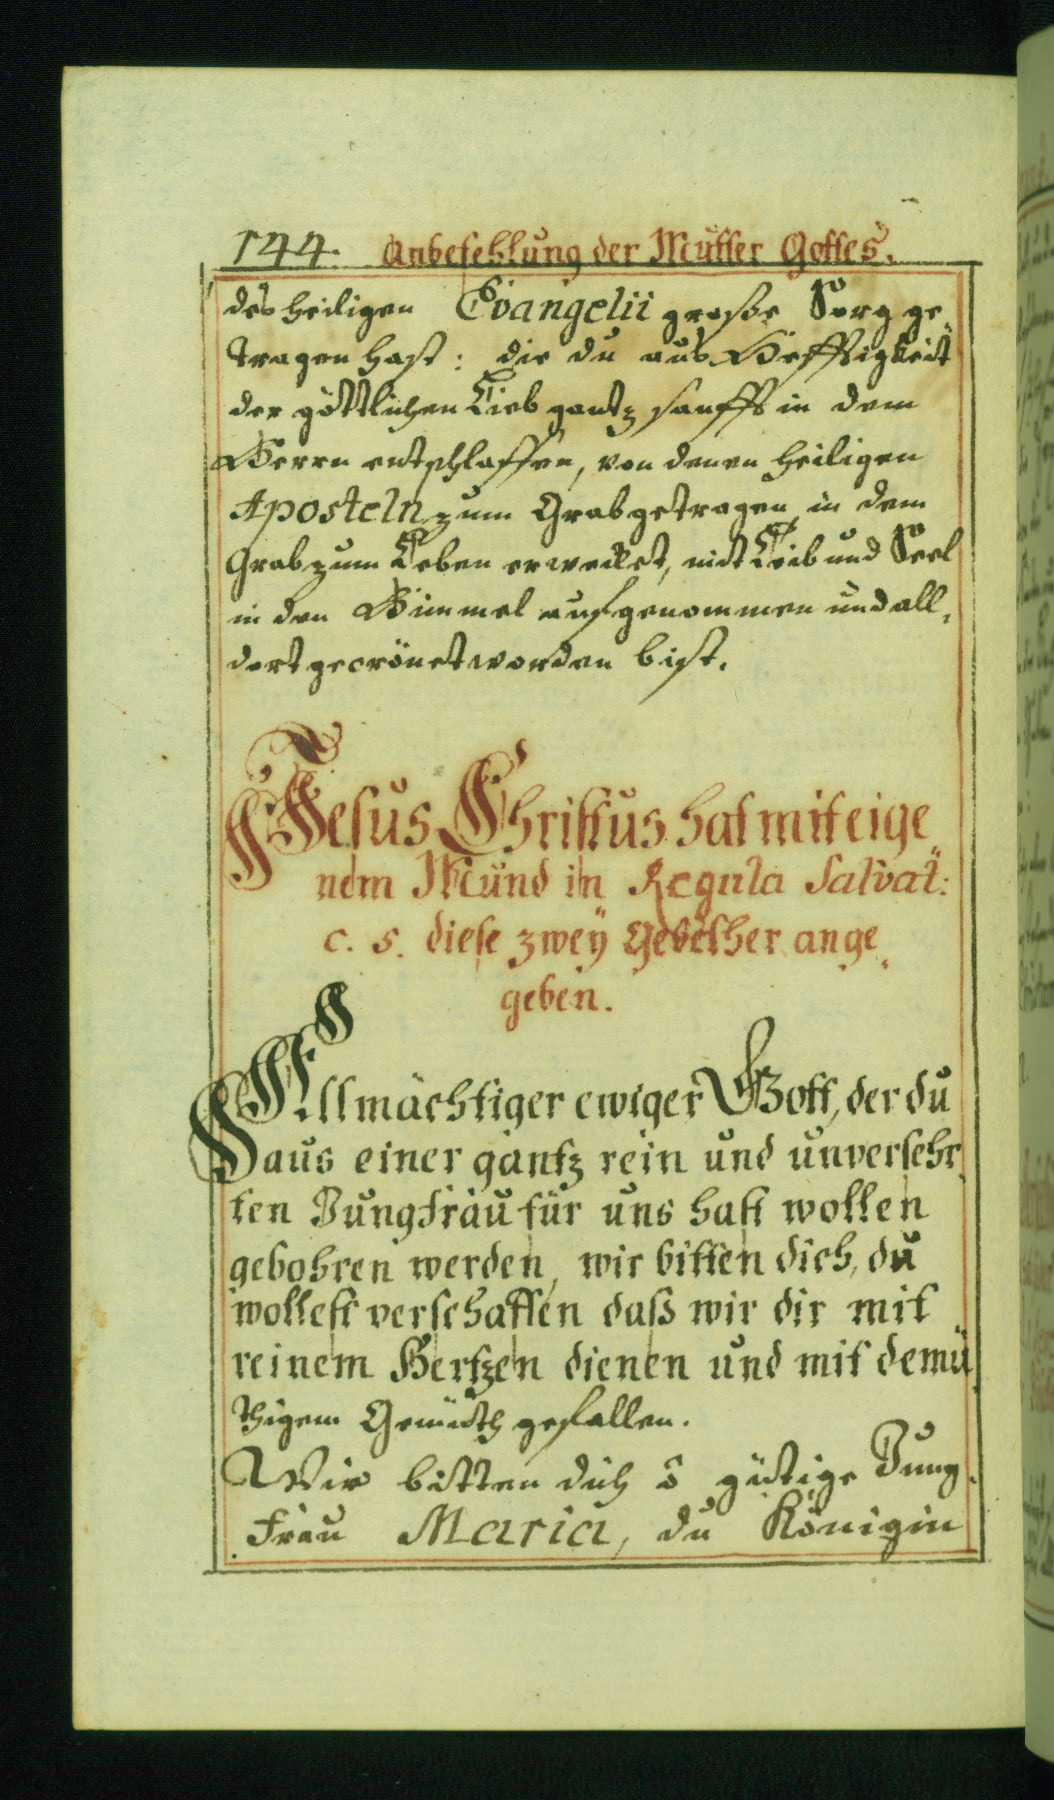 144. Anbefehlung der Mutter Gottes.
des heiligen Evangelii große Sorg ge„
tragen hast: die du aus Hefftigkeit
der göttlichen Lieb gantz sanfft in dem
Herrn entschlaffen, von denen heiligen
Aposteln zum Grab getragen, in dem
Grab zum Leben erwecket, mit Leib und Seel
in den Himmel aufgenommen und all„
dort gecrönet worden bist.
Jesus Christus hat mit eige„
nem Mund in Regula Salvat:
c. 5. diese zweÿ Gebether ange„
geben.
Allmächtiger ewiger Gott, der du
aus einer gantz rein und unversehr„
ten Jungfrau für uns hast wollen
gebohren werden, wir bitten dich, du
wollest verschaffen daß wir dir mit
reinem Hertzen dienen und mit demü„
thigem Gemüth gefallen.
Wir bitten dich ô gütige Jung„
frau Maria, du Königin